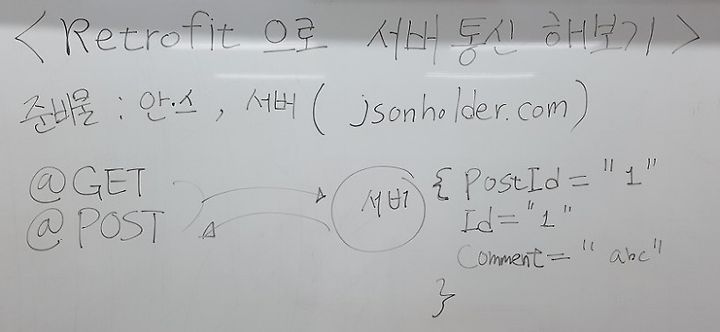 < Retrofit 으로 서버 통신 해보기 >
준비물 : 안.스 , 서버 ( jsonholder.com )
@GET
@POST
서버
{ PostId = "1"
Id = "1"
Comment = "abc"
}